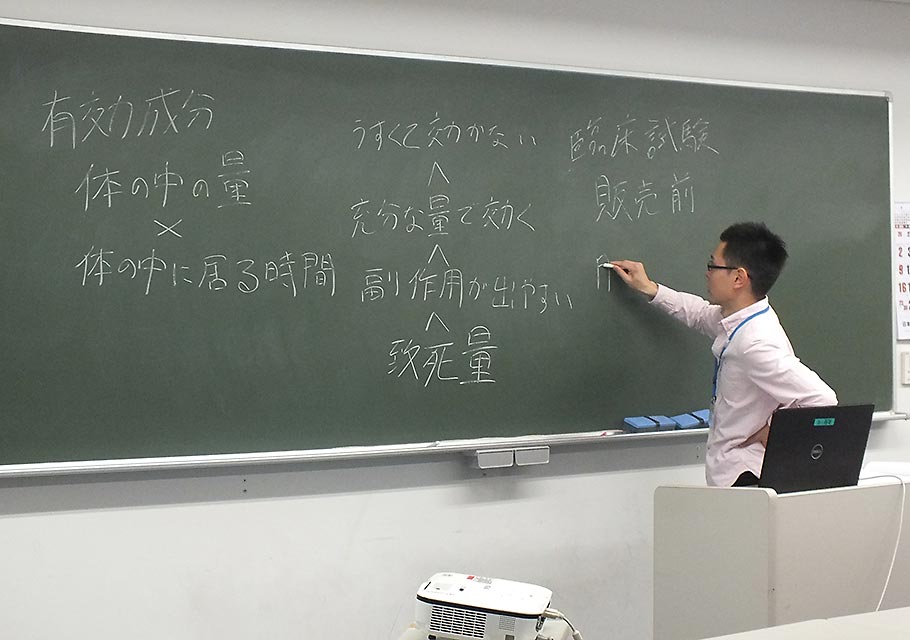 有効成分
体の中の量
×
体の中に居る時間
うすくて効かない
∧
充分な量で効く
∧
副作用が出やすい
∧
致死量
臨床試験
販売前
DELL